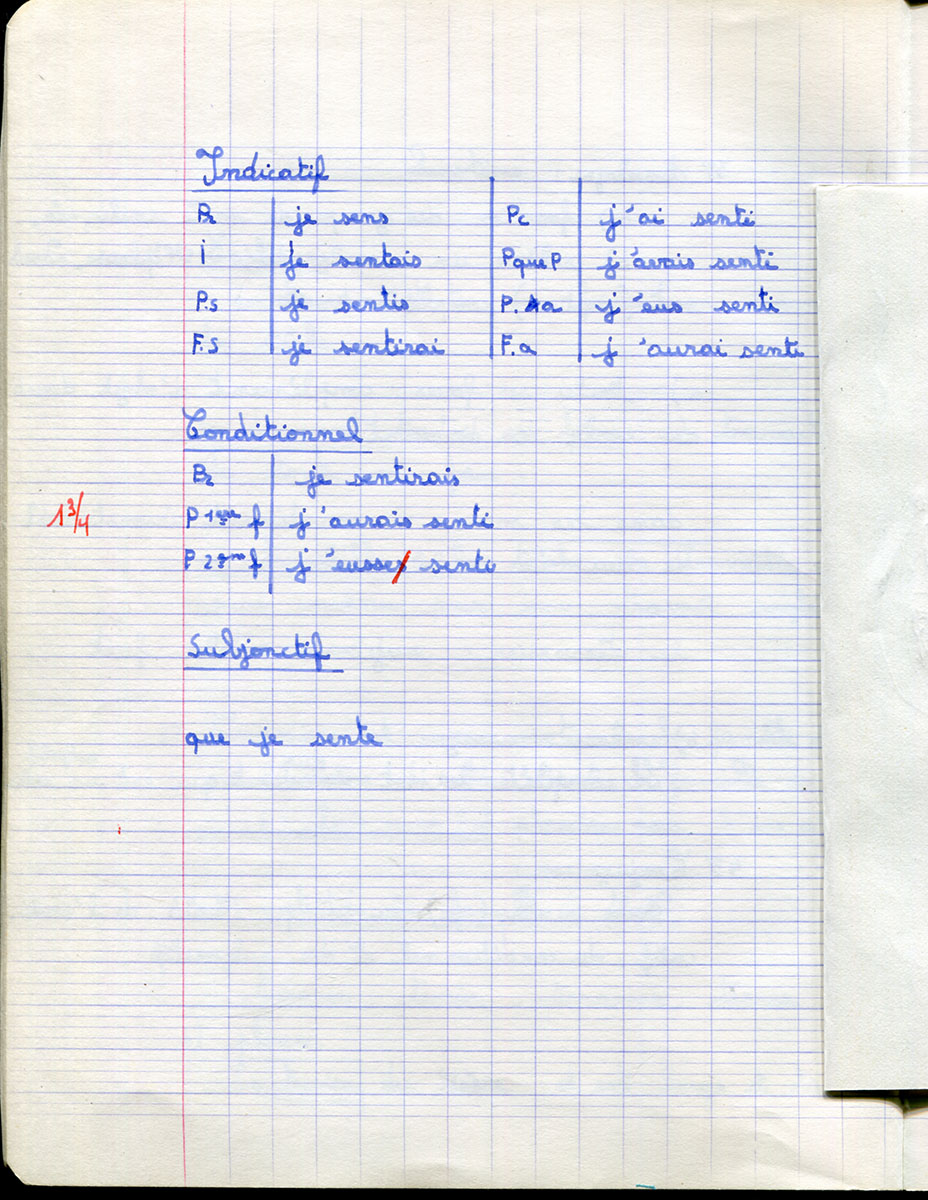 Indicatif
Pr je sens Pc j'ai senti
I je sentais PqueP j'avais senti
P.S je sentis P.a j'eus senti
F.S je sentirai F.a j'aurai senti
Conditionnel
Pr je sentirais
1 3/4
P 1ère f j'aurais senti
P 2ème f j'eusses senti
Subjonctif
que je sente